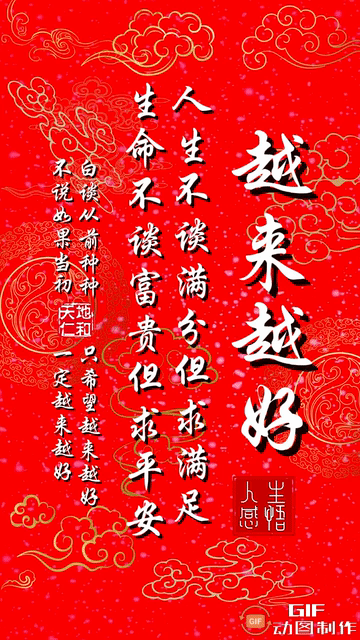 越来越好
人生
感悟
人生不谈满分但求满足
生命不谈富贵但求平安
白谈从前种种 只希望越来越好
不说如果当初 一定越来越好
天地
仁和
GIF
GIF
动图制作